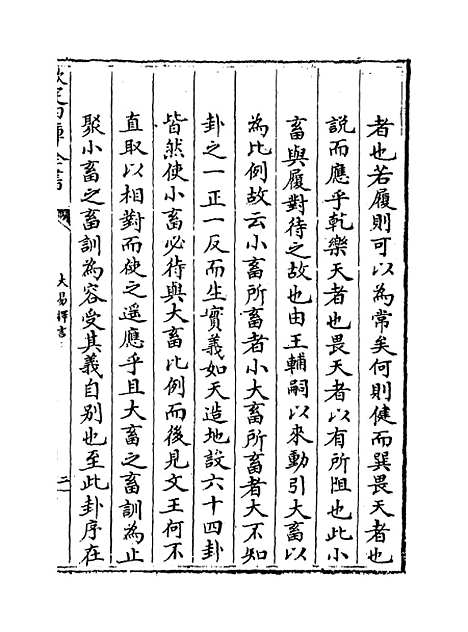 者也若履則可以為常矣何則健而巽畏天者也
説而應乎乾樂天者也畏天者以有所阻也此小
畜與履對待之故也由王輔嗣以來動引大畜以
為比例故云小畜所畜者小大畜所畜者大不知
卦之一正一反而生實義如天造地設六十四卦
皆然使小畜必待與大畜比例而後見文王何不
直取以相對而使之遥應乎且大畜之畜訓為止
聚小畜之畜訓為容受其義自别也至此卦序在
欽定四庫全書
大易擇言
二